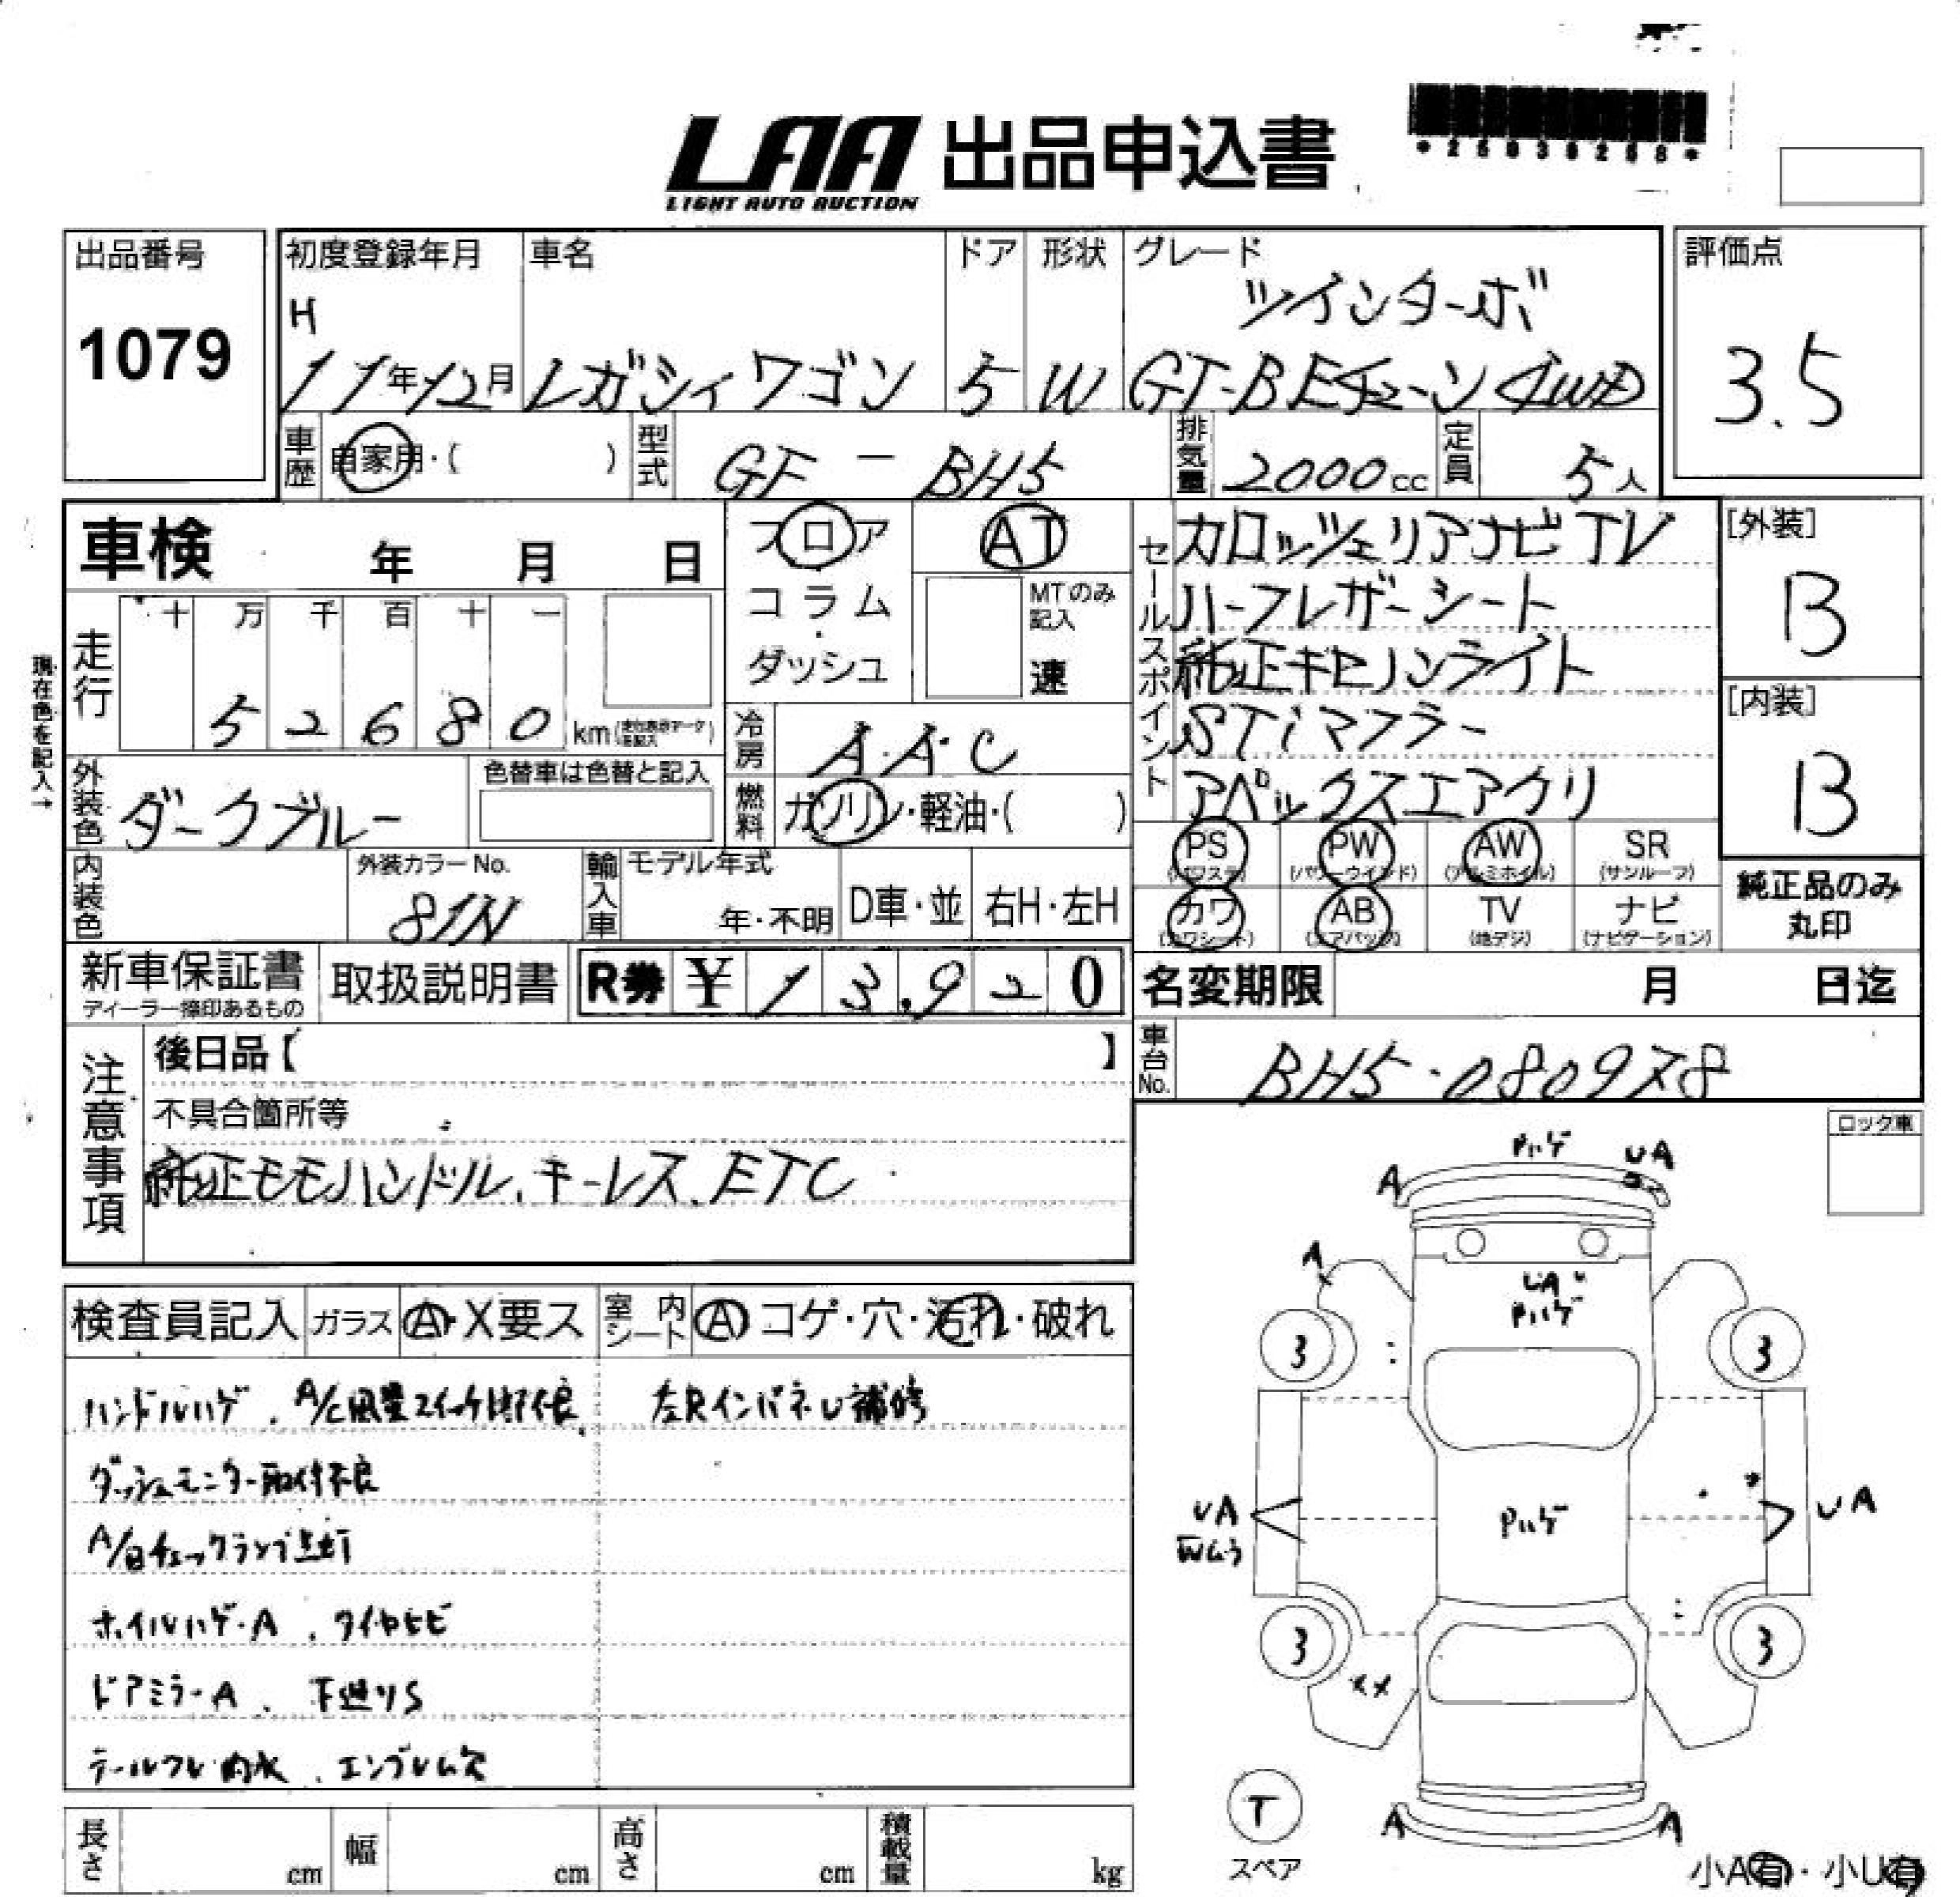 LAA 出品申込書
LIGHT AUTO AUCTION
出品番号
1079
初度登録年月
H
11年12月
車名
レガシィワゴン
ドア
5
形状
W
グレード
ツインターボ
GT-B Eチューン 4WD
評価点
3.5
車歴
自家用・( )
型式
GF - BH5
排気量
2000cc
定員
5人
車検 年 月 日
フロア
コラム
・
ダッシュ
AT
MTのみ
記入
速
現在色を記入→
走行
十 万 千 百 十 一
5 2 6 8 0 km
冷房
A.A.C
燃料
ガソリン・軽油・( )
外装色
ダークブルー
色替車は色替と記入
内装色
外装カラーNo.
81N
輸入車
モデル年式
年・不明
D車・並
右H・左H
セールスポイント
カロッツェリアナビTV
ハーフレザーシート
純正キセノンライト
STiマフラー
アペックスエアクリ
[外装]
B
[内装]
B
PS PW AW SR
(パワステ) (パワーウインド) (アルミホイル) (サンルーフ)
カワ AB TV ナビ
(カワシート) (エアバック) (地デジ) (ナビゲーション)
純正品のみ
丸印
新車保証書
ディーラー捺印あるもの
取扱説明書
R券 ¥ 13,920
名変期限 月 日迄
車台No.
BH5-080978
注意事項
後日品【 】
不具合箇所等
純正モモハンドル、キーレス、ETC
ロック車
検査員記入
ガラス A・X要ス
室内シート A コゲ・穴・汚れ・破れ
ハンドルハゲ、A/C風量スイッチ不良
左Rインパネし補修
ダッシュモニター取付不良
A/Bチェックランプ点灯
ホイルハゲ・A、タイヤヒビ
ドアミラーA、下廻りS
テールフレ内水、エンブレム欠
Pハゲ
UA
A
A
UA
Pハゲ
3
3
UA
Wムラ
Pハゲ
UA
3
3
T
スペア
A
A
小A有・小U有
長さ cm
幅 cm
高さ cm
積載量 kg